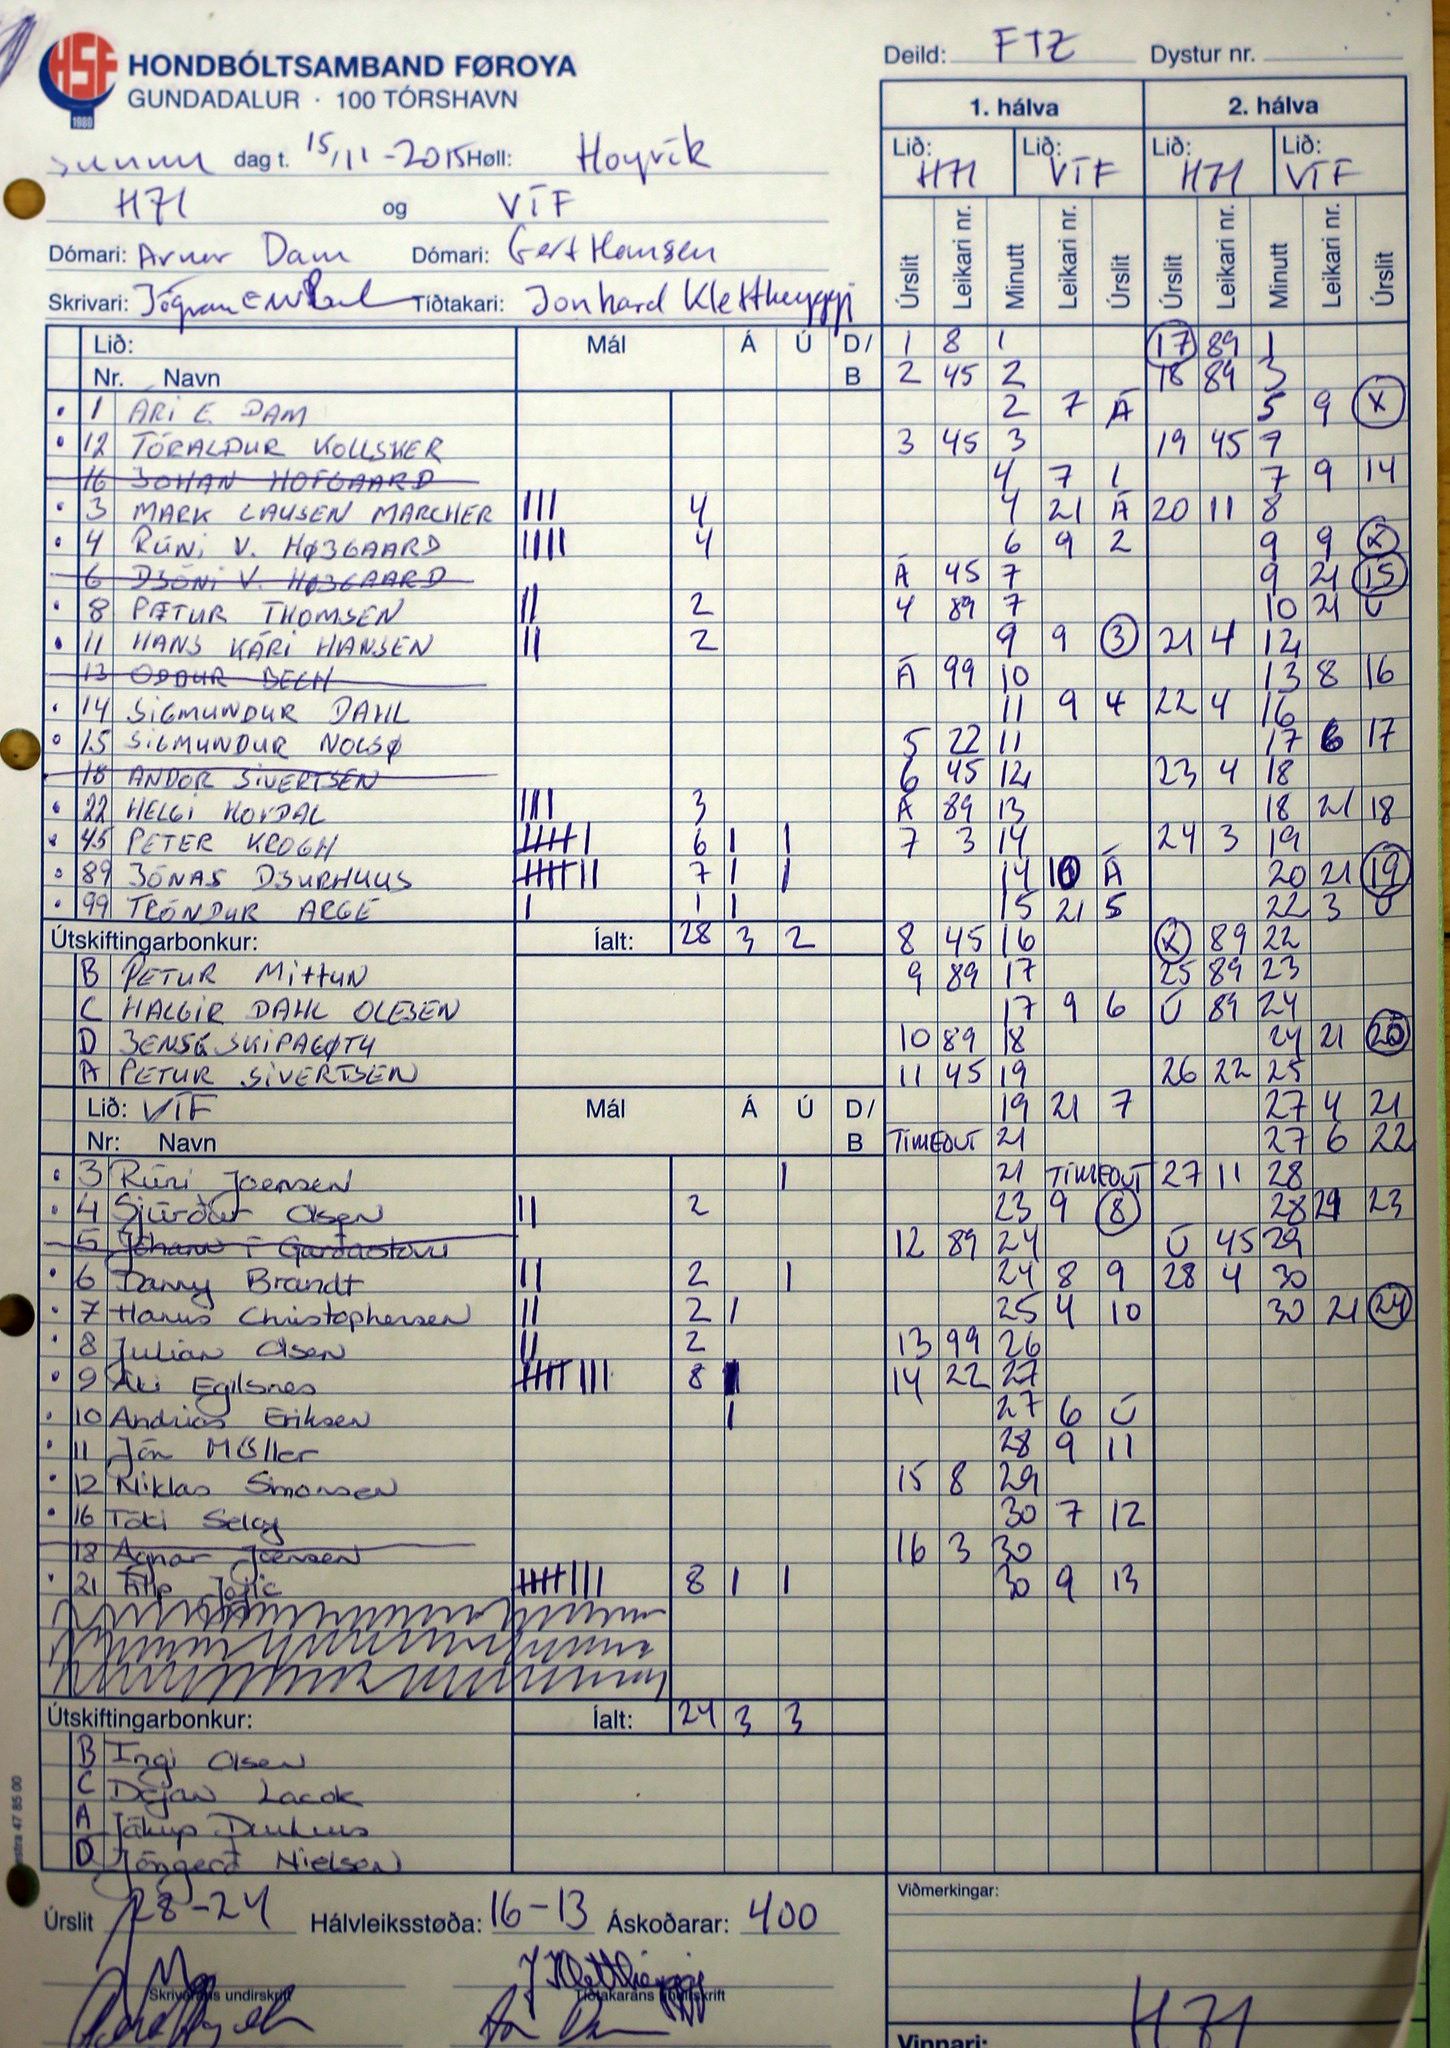 HSF
1980
HONDBÓLTSAMBAND FØROYA
GUNDADALUR · 100 TÓRSHAVN
Deild: FTZ Dystur nr.
dag t. 15/11-2015 Høll: Hoyvík
H71 og VÍF
Dómari: Arnar Dam Dómari: Gert Hansen
Skrivari: Tíðtakari: Jonhard Klettheyggj
1. hálva 2. hálva
Lið: H71 Lið: VÍF Lið: H71 Lið: VÍF
Úrslit Leikari nr. Minutt Leikari nr. Úrslit Úrslit Leikari nr. Minutt Leikari nr. Úrslit
Lið: Mál Á Ú D/
Nr. Navn B
1 ARI E. DAM
12 TÓRALDUR KOLLSKER
16 JÓHAN HOFGAARD
3 MARK LAUSEN MARCHER 4
4 RÚNI V. HØJGAARD 4
6 DJÓNI V. HØJGAARD
8 PÆTUR THOMSEN 2
11 HANS KÁRI HANSEN 2
13 ODDUR BECH
14 SIGMUNDUR DAHL
15 SIGMUNDUR NOLSØ
18 ANDOR SIVERTSEN
22 HELGI HOYDAL 3
45 PETER KROGH 6 1 1
89 JÓNAS DJURHUUS 7 1 1
99 TRÓNDUR ARGE 1 1
Útskiftingarbonkur: Íalt: 28 3 2
B PETUR MITTUN
C HALGIR DAHL OLESEN
D JENS E SKIPAGØTU
A PETUR SIVERTSEN
Lið: VÍF Mál Á Ú D/
Nr: Navn B
3 Rúni Joensen 1
4 Sjúrður Olsen 2
5 Jóhann í Garðastovu
6 Danny Brandt 2 1
7 Hanus Christophersen 2 1
8 Julian Olsen 2
9 Áki Egilsnes 8
10 Andrias Eriksen 1
11 Ján Müller
12 Niklas Simonsen
16 Tóki Seloy
18 Agnar Joensen
21 Filip Jojic 8 1 1
Útskiftingarbonkur: Íalt: 24 3 3
B Ingi Olsen
C Dejan Lacok
A Jákup Djurhuus
D Jóngerð Nielsen
1 8 1
2 45 2
2 7 Á
3 45 3
4 7 1
4 21 Á
6 9 2
Á 45 7
4 89 7
9 9 3
Á 99 10
11 9 4
5 22 11
6 45 12
Á 89 13
7 3 14
14 10 Á
15 21 5
8 45 16
9 89 17
17 9 6
10 89 18
11 45 19
19 21 7
TIMEOUT 21
21 TIMEOUT
23 9 8
12 89 24
24 8 9
25 4 10
13 99 26
14 22 27
27 6 Ú
28 9 11
15 8 29
30 7 12
16 3 30
30 9 13
17 89 1
18 89 3
5 9 X
19 45 7
7 9 14
20 11 8
9 9 X
9 21 15
10 21 Ú
21 4 12
13 8 16
22 4 16
17 6 17
23 4 18
18 21 18
24 3 19
20 21 19
22 3 Ú
X 89 22
25 89 23
Ú 89 24
24 21 20
26 22 25
27 4 21
27 6 22
27 11 28
28 21 23
Ú 45 29
28 4 30
30 21 24
Úrslit 28-24 Hálvleiksstøða: 16-13 Áskoðarar: 400
Viðmerkingar:
Skrivarans undirskrift Tíðtakarans undirskrift
Vinnari: H71
47 85 00